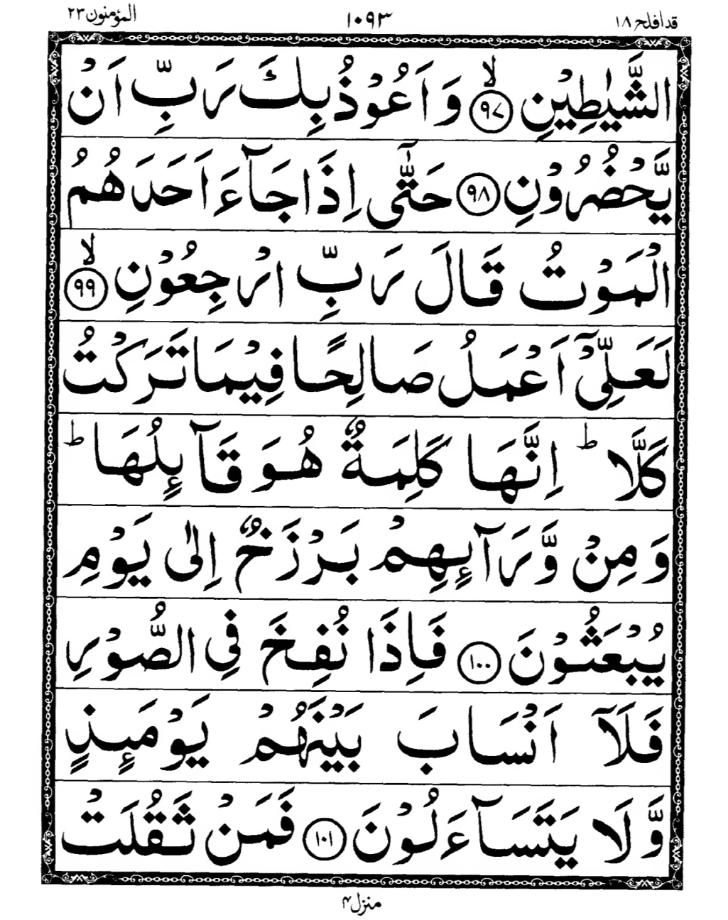 قدافلح ١٨ ١٠٩٣ المؤمنون ٢٣
الشَّيٰطِيْنِ ﴿۹۷﴾ۙ وَاَعُوْذُ بِكَ رَبِّ اَنْ
يَّحْضُرُوْنِ ﴿۹۸﴾ حَتّٰۤى اِذَا جَآءَ اَحَدَهُمُ
الْمَوْتُ قَالَ رَبِّ ارْجِعُوْنِ ﴿۹۹﴾ۙ
لَعَلِّىْۤ اَعْمَلُ صَالِحًا فِيْمَا تَرَكْتُ
كَلَّا ؕ اِنَّهَا كَلِمَةٌ هُوَ قَآئِلُهَا ؕ
وَمِنْ وَّرَآئِهِمْ بَرْزَخٌ اِلٰى يَوْمِ
يُبْعَثُوْنَ ﴿۱۰۰﴾ فَاِذَا نُفِخَ فِى الصُّوْرِ
فَلَاۤ اَنْسَابَ بَيْنَهُمْ يَوْمَئِذٍ
وَّلَا يَتَسَآءَلُوْنَ ﴿۱۰۱﴾ فَمَنْ ثَقُلَتْ
منزل۴